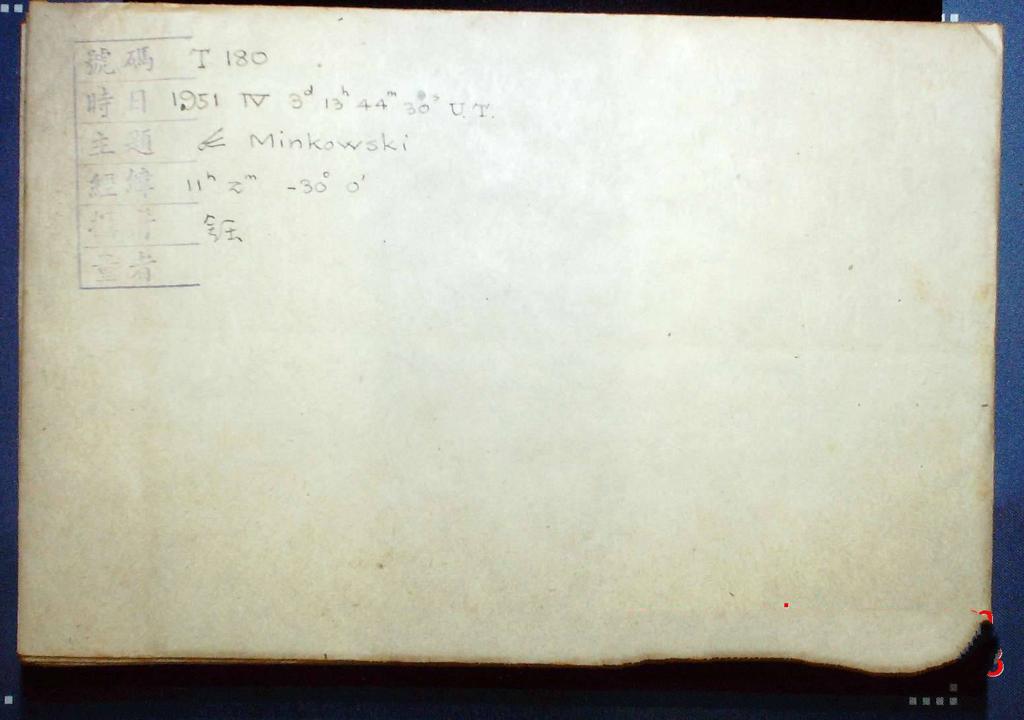 號碼 T 180
時日 1951 IV 3d 13h 44m 30s U.T.
主題 Minkowski
經緯 11h 2m -30° 0'
鈺
量者